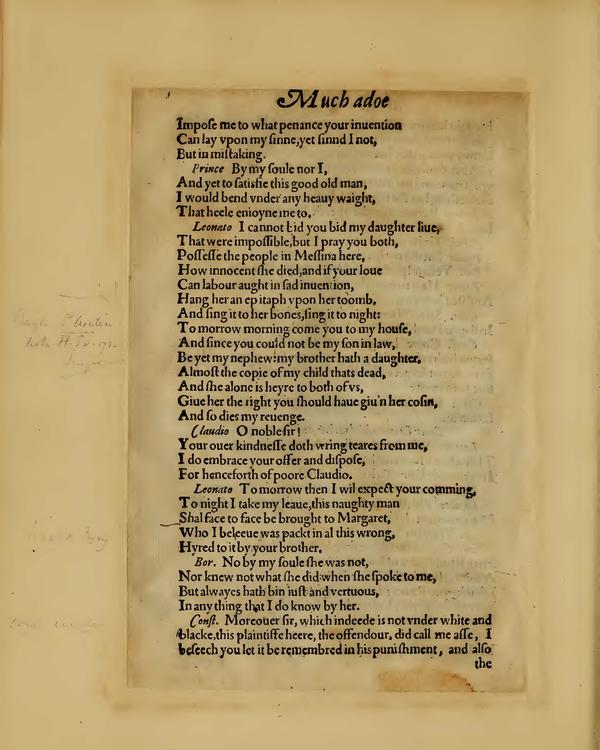 Much adoe
Impoſe me to what penance your inuention
Can lay vpon my ſinne,yet ſinnd I not,
But in miſtaking.
Prince By my ſoule nor I,
And yet to ſatisfie this good old man,
I would bend vnder any heauy waight,
That heele enioyne me to.
Leonato I cannot bid you bid my daughter liue,
That were impoſſible,but I pray you both,
Poſſeſſe the people in Meſſina here,
How innocent ſhe died,and if your loue
Can labour aught in ſad inuention,
Hang her an epitaph vpon her toomb,
And ſing it to her bones,ſing it to night:
To morrow morning come you to my houſe,
And ſince you could not be my ſon in law,
Be yet my nephew:my brother hath a daughter,
Almoſt the copie of my child thats dead,
And ſhe alone is heyre to both of vs,
Giue her the right you ſhould haue giu'n her coſin,
And ſo dies my reuenge.
Claudio O noble ſir!
Your ouer kindneſſe doth wring teares from me,
I do embrace your offer and diſpoſe,
For henceforth of poore Claudio.
Leonato To morrow then I wil expect your comming,
To night I take my leaue,this naughty man
Shal face to face be brought to Margaret,
Who I beleeue was packt in al this wrong,
Hyred to it by your brother.
Bor. No by my ſoule ſhe was not,
Nor knew not what ſhe did when ſhe ſpoke to me,
But alwayes hath bin iuſt and vertuous,
In any thing that I do know by her.
Conſt. Moreouer ſir, which indeede is not vnder white and
blacke,this plaintiffe heere, the offendour, did call me aſſe, I
beſeech you let it be remembred in his puniſhment, and alſo
the